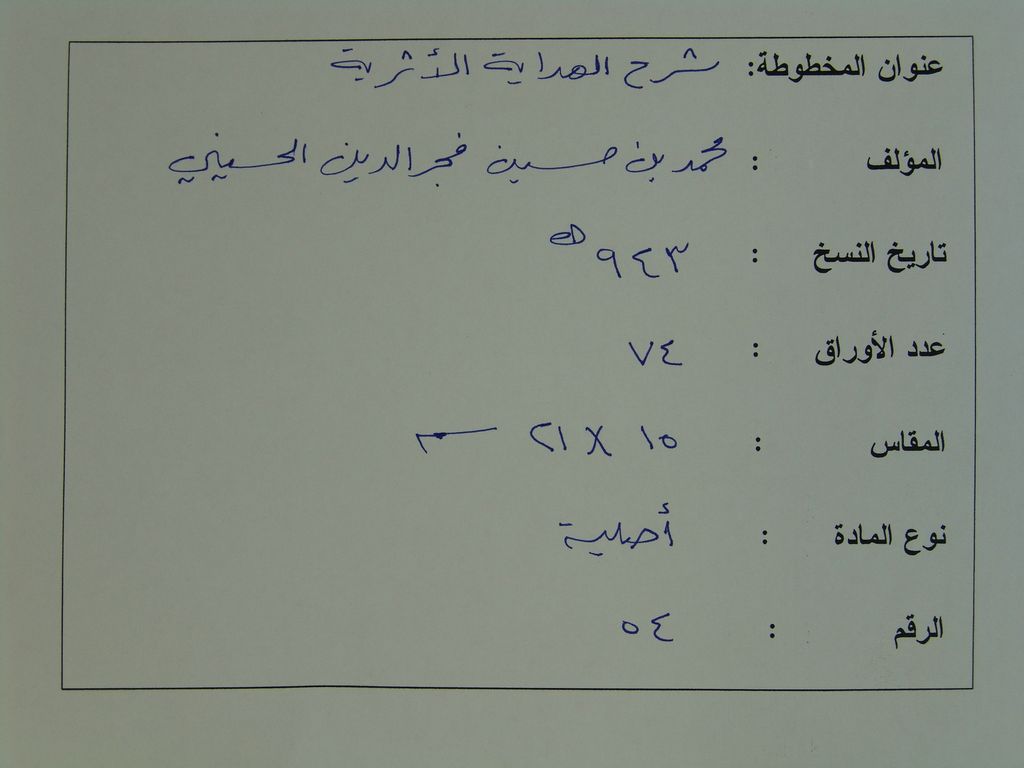 عنوان المخطوطة: شرح الهداية الأثرية
المؤلف : محمد بن حسين فخر الدين الحسيني
تاريخ النسخ : ٩٤٣ هـ
عدد الأوراق : ٧٤
المقاس : ١٥ X ٢١ سم
نوع المادة : أصلية
الرقم : ٥٤